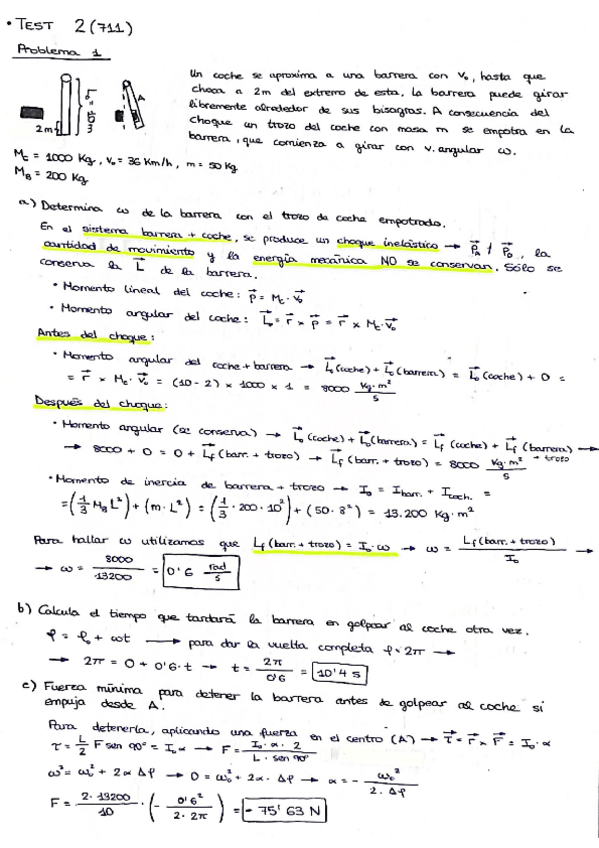 • TEST 2 (711)
Problema 1
Un coche se aproxima a una barrera con V₀, hasta que
choca a 2m del extremo de esta, la barrera puede girar
libremente alrededor de sus bisagras. A consecuencia del
choque un trozo del coche con masa m se empotra en la
barrera, que comienza a girar con v. angular ω.
L₀ = 10m
A
2m
M_c = 1000 Kg, V₀ = 36 Km/h, m = 50 Kg
M_B = 200 Kg
a) Determina ω de la barrera con el trozo de coche empotrado.
En el sistema barrera + coche, se produce un choque inelástico → , la
cantidad de movimiento y la energía mecánica NO se conservan. Sólo se
conserva la L⃗ de la barrera.
• Momento lineal del coche: p⃗ = M_c · v⃗₀
• Momento angular del coche: L⃗₀ = r⃗ × p⃗ = r⃗ × M_c · v⃗₀
Antes del choque:
• Momento angular del coche + barrera → L⃗₀ (coche) + L⃗₀ (barrera) = L⃗₀ (coche) + 0 =
= r⃗ × M_c · v⃗₀ = (10 - 2) × 1000 × 1 = 8000 Kg·m²/s
Después del choque:
• Momento angular (se conserva) → L⃗₀ (coche) + L⃗₀ (barrera) = L⃗f (coche) + L⃗f (barrera + trozo) →
→ 8000 + 0 = 0 + L⃗f (barr. + trozo) → L⃗f (barr. + trozo) = 8000 Kg·m²/s
• Momento de inercia de barrera + trozo → I₀ = I barr. + I coch. =
= (1/3 M_B L²) + (m · L²) = (1/3 · 200 · 10²) + (50 · 8²) = 13.200 Kg·m²
Para hallar ω utilizamos que Lf (barr. + trozo) = I₀ · ω → ω = Lf (barr. + trozo) / I₀ →
→ ω = 8000/13200 = 0'6 rad/s
b) Calcula el tiempo que tardará la barrera en golpear al coche otra vez.
φ = φ₀ + ωt → para dar la vuelta completa φ = 2π →
→ 2π = 0 + 0'6 · t → t = 2π/0'6 = 10'4 s
c) Fuerza mínima para detener la barrera antes de golpear al coche si
empuja desde A.
Para detenerla, aplicando una fuerza en el centro (A) → τ⃗ = r⃗ × F⃗ = I₀ · α
τ = L/2 F sen 90° = I₀ α → F = I₀ · α · 2 / L · sen 90°
ω² = ω₀² + 2α Δφ → 0 = ω₀² + 2α · Δφ → α = - ω₀² / 2 · Δφ
F = 2 · 13200 / 10 · (- 0'6² / 2 · 2π) = - 75'63 N